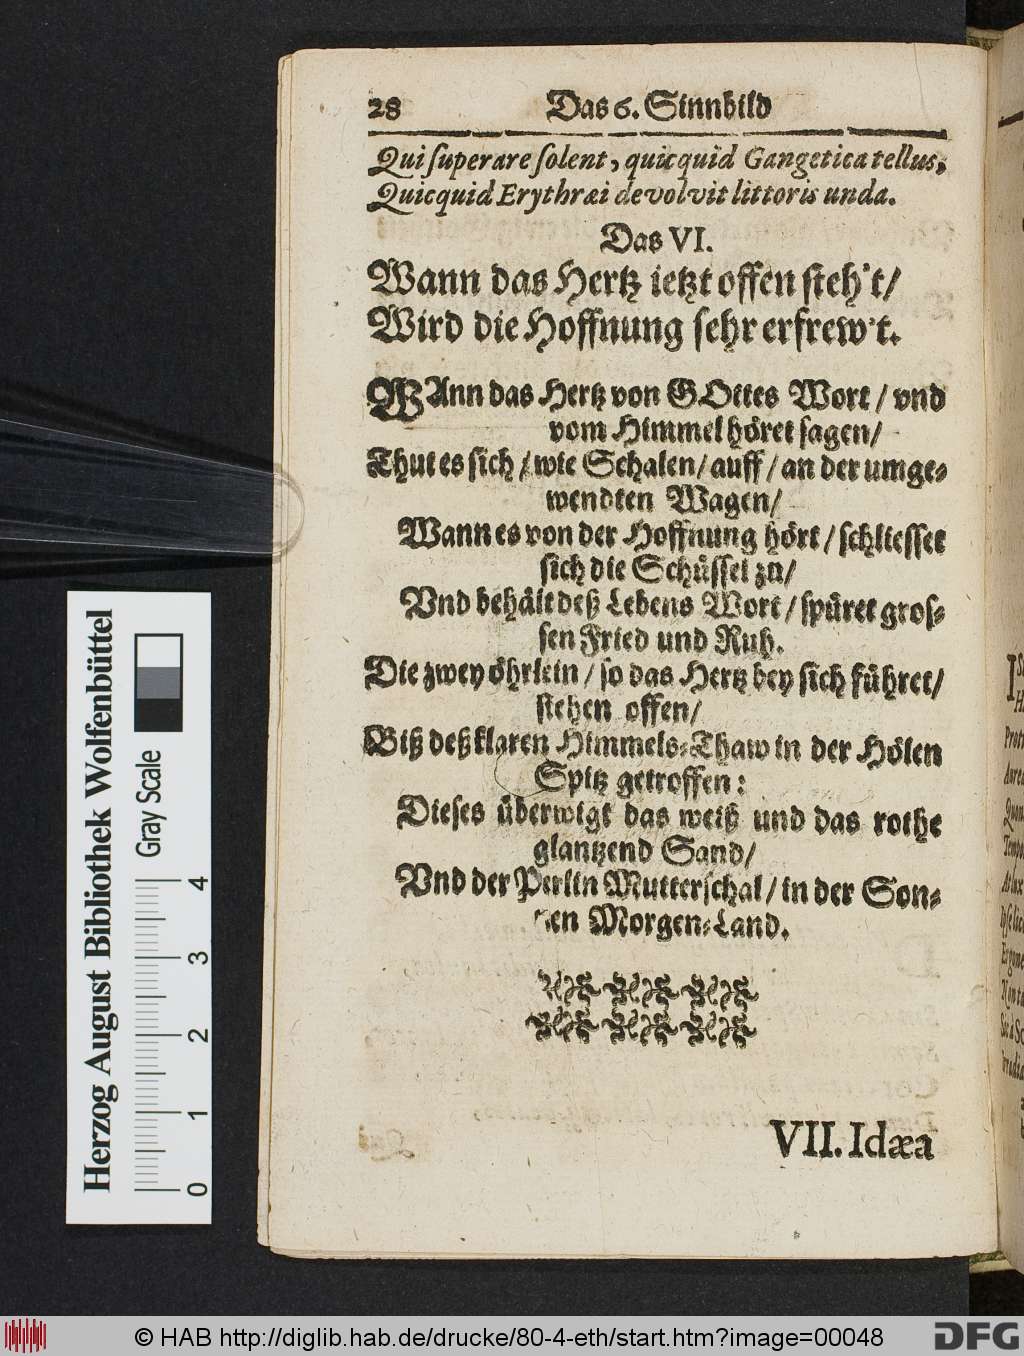 28 Das 6. Sinnbild
Qui ſuperare ſolent, quicquid Gangetica tellus,
Quicquid Erythræi devolvit littoris unda.
Das VI.
Wann das Hertz ietzt offen ſteh't/
Wird die Hoffnung ſehr erfrew't.
WAnn das Hertz von GOttes Wort / vnd
vom Himmel höret ſagen/
Thut es ſich / wie Schalen / auff / an der umge-
wendten Wagen/
Wann es von der Hoffnung hört / ſchlieſſet
ſich die Schüſſel zu/
Vnd behält deß Lebens Wort / ſpüret groſ-
ſen Fried und Ruh.
Die zwey öhrlein / ſo das Hertz bey ſich führet/
ſtehen offen/
Biß deß klaren Himmels-Thaw in der Hölen
Spitz getroffen:
Dieſes überwigt das weiß und das rothe
glantzend Sand/
Vnd der Perlin Mutterſchal / in der Son-
nen Morgen-Land.
VII. Idæa
Herzog August Bibliothek Wolfenbüttel
Gray Scale
0 1 2 3 4
© HAB http://diglib.hab.de/drucke/80-4-eth/start.htm?image=00048
DFG